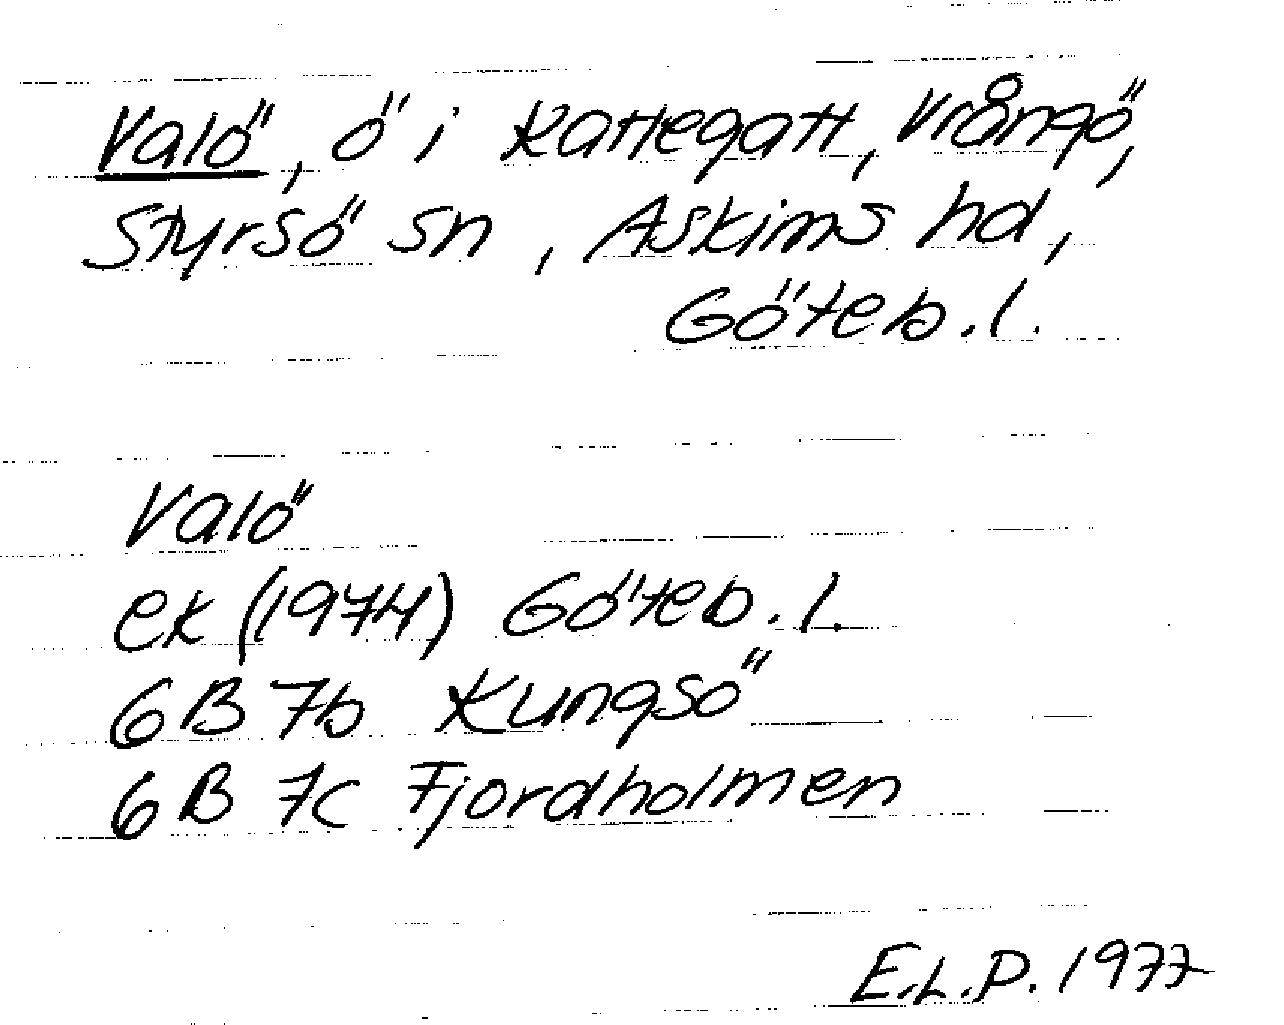 Valö, ö i Kattegatt, Vrångö,
Styrsö sn, Askims hd,
Göteb.l.
Valö
ek (1974) Göteb.l.
6B 7b Kungsö
6B 7c Fjordholmen
E.L.P. 1977